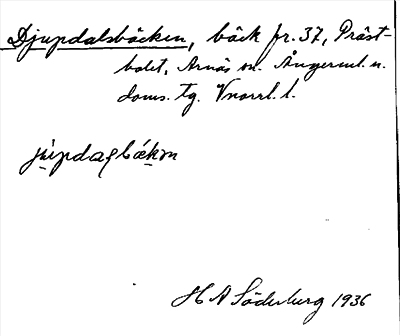 Djupdalsbäcken, bäck fr. 37, Präst-
bolet, Arnäs sn. Ångerml. n.
doms. tg. Vnorrl. l.
H A Söderberg 1936